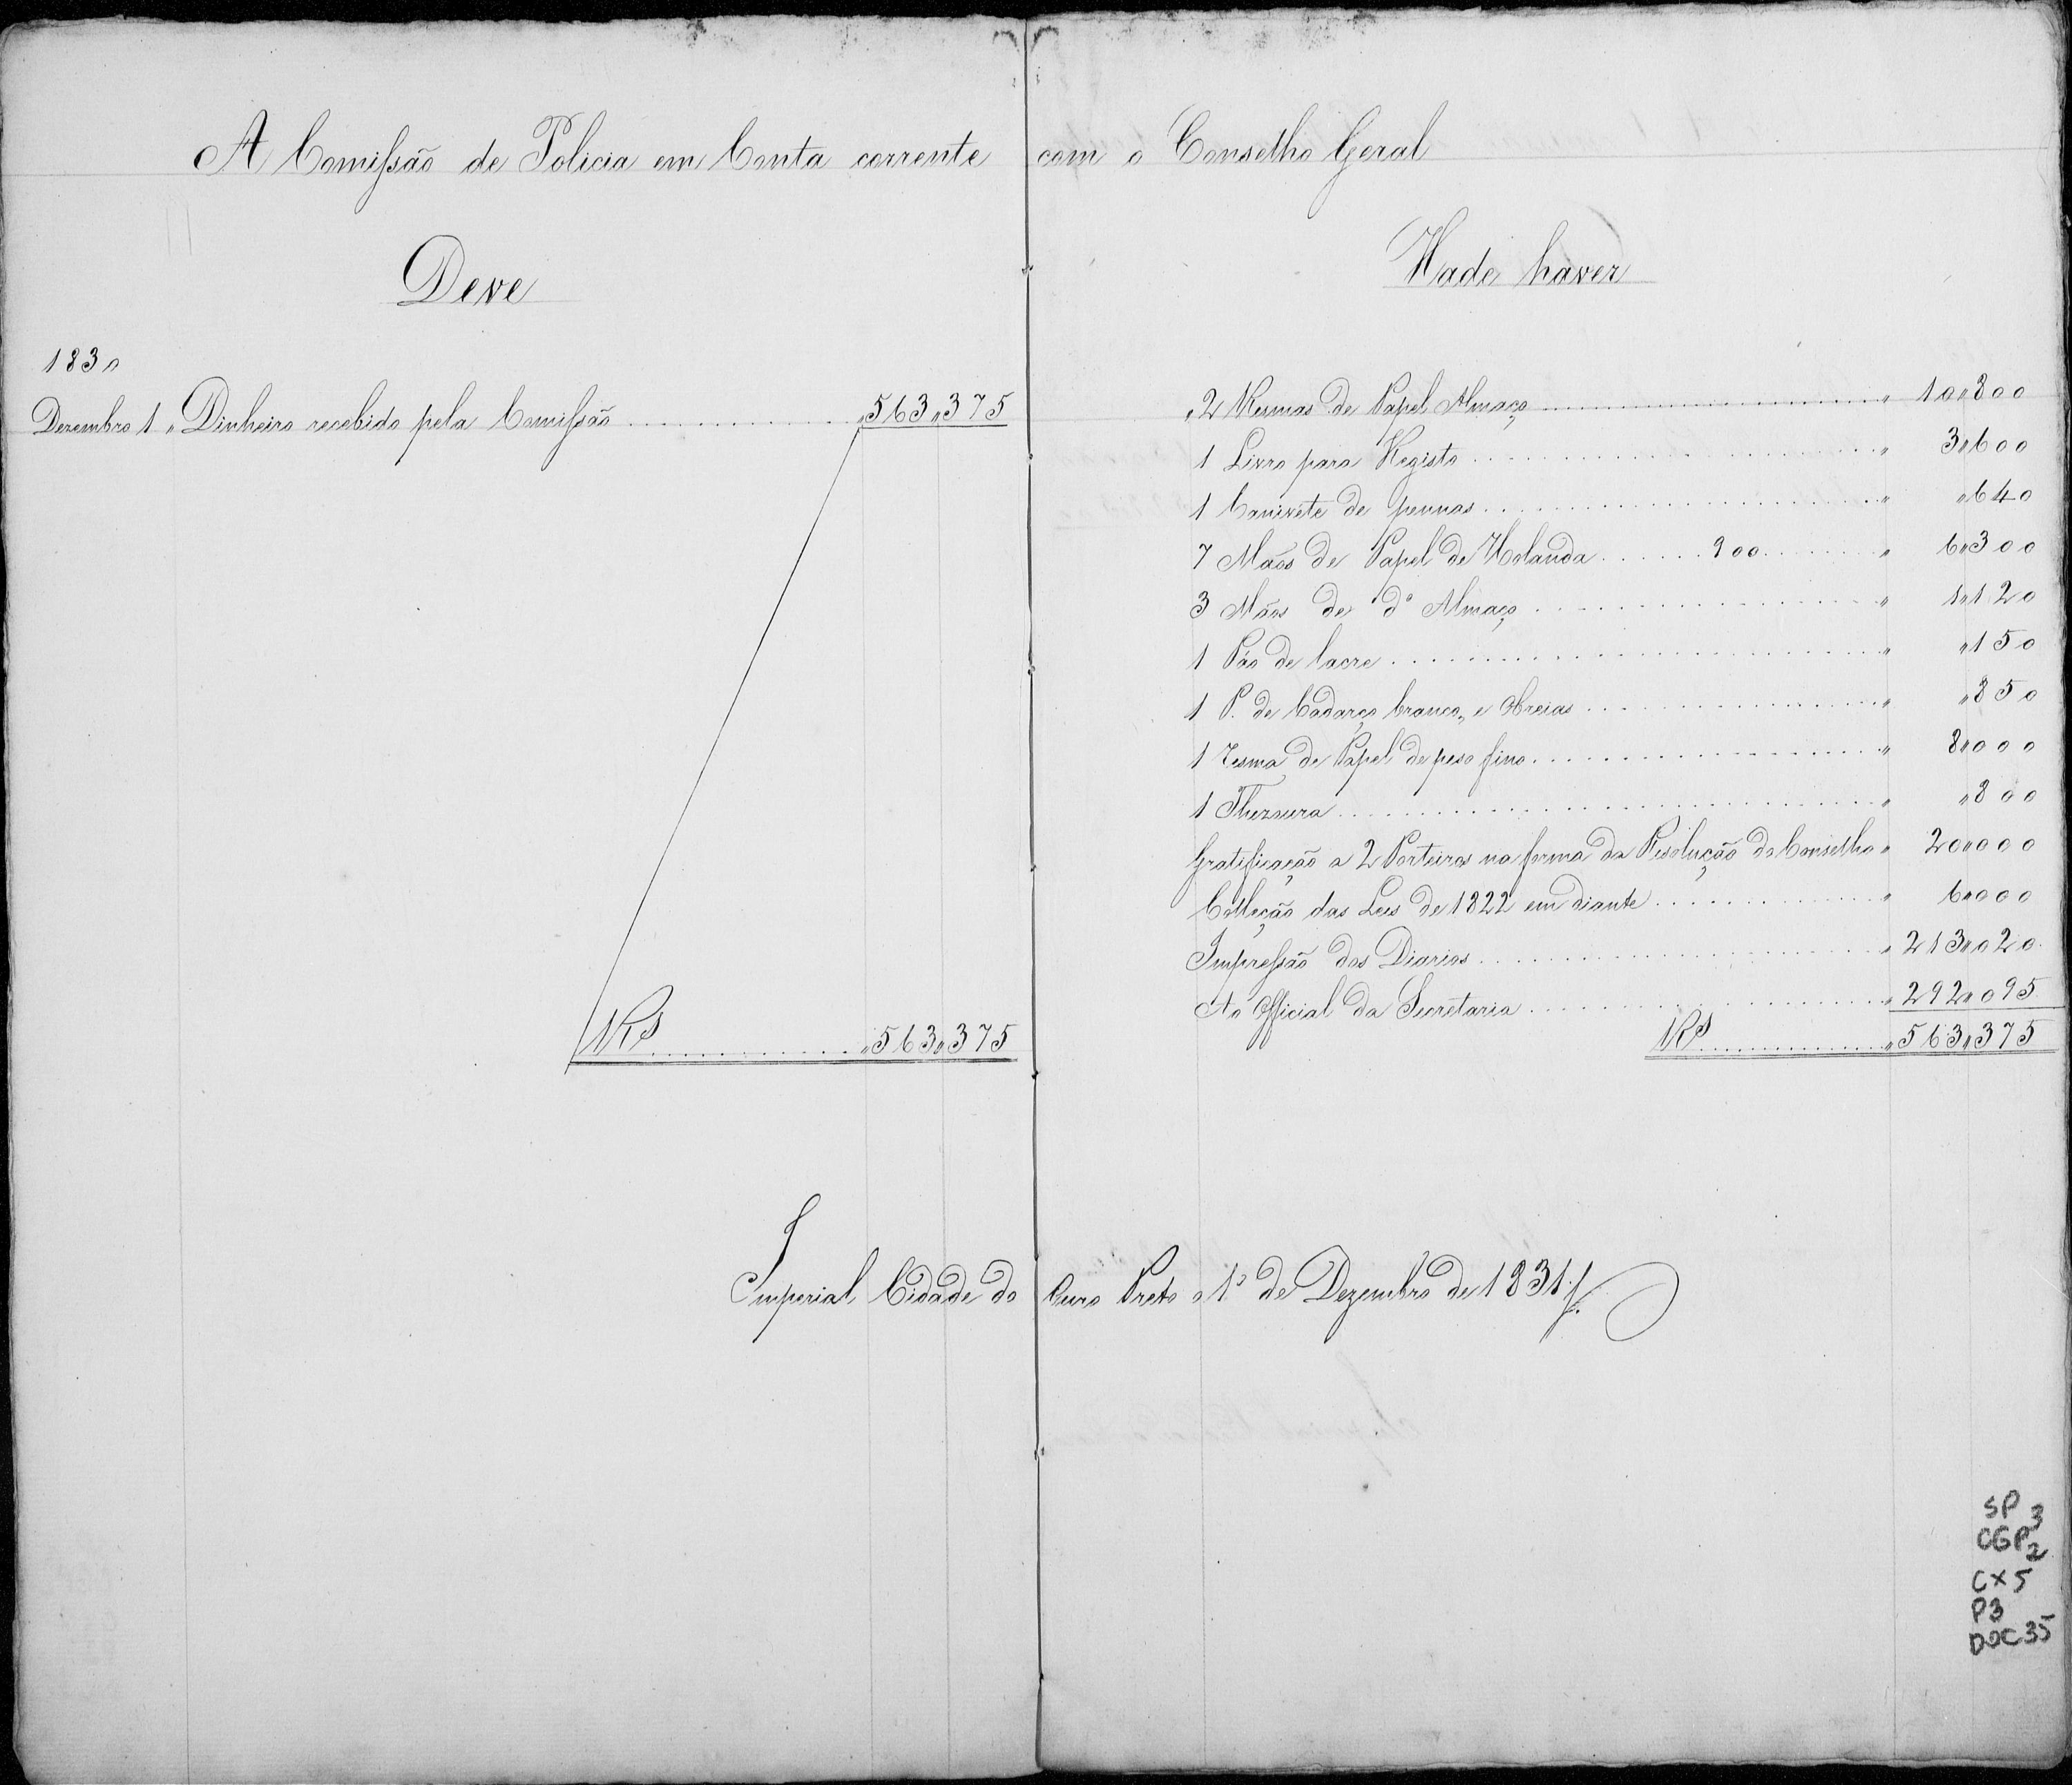 A Comissão de Policia em Conta corrente com o Conselho Geral
Deve
1830
Dezembro 1 „ Dinheiro recebido pela Comissão ............ „563„375
RS ............ „563„375
Hade haver
„2 Resmas de Papel Almaço ............ „ 10„800
1 Livro para Registo ............ „ 3„600
1 Canivete de pennas ............ „ „640
7 Mãos de Papel de Holanda ...... 900 ...... „ 6„300
3 Mãos de dº Almaço ............ „ 1„120
1 Páo de lacre ............ „ „150
1 P. de Cadarço branco, e Obreias ............ „ „850
1 Resma de Papel de peso fino ............ „ 8„000
1 Thezoura ............ „ „800
Gratificação a 2 Porteiros na forma da Resolução do Conselho „ 20„000
Colleção das Leis de 1822 em diante ............ „ 6„000
Impressão dos Diarios ............ „ 213„020
Ao Official da Secretaria ............ „ 292„095
RS ............ „563„375
Imperial Cidade do Ouro Preto o 1º de Dezembro de 1831
SP 3
CGP2
CX5
P3
DOC35